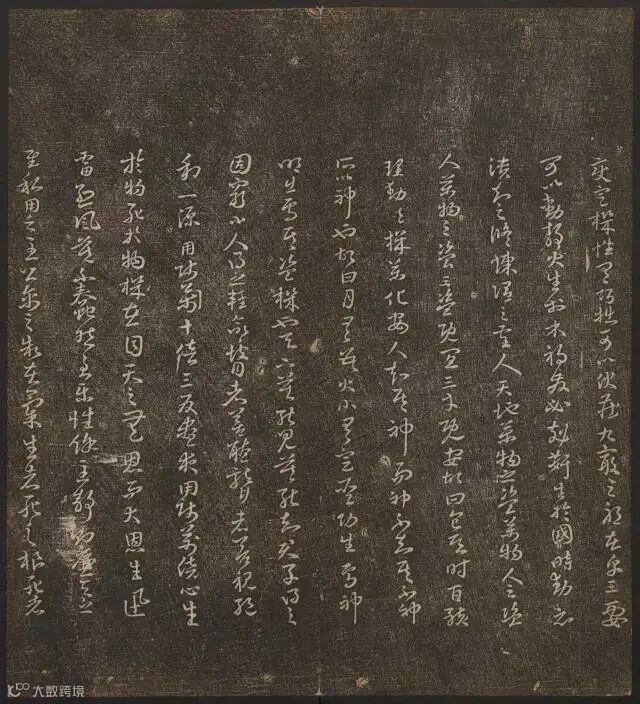 變定機性有巧拙可以伏藏九竅之邪在乎三要
可以動靜火生於木禍發必剋姦生於國時動必
潰知之修煉謂之聖人天地萬物之盜萬物人之盜
人萬物之盜三盜既宜三才既安故曰食其時百骸
理動之機萬化安人知其神而神不知其不神
所以神也故曰月有數大小有定聖功生焉神
明出焉其盜機也天下莫能見莫能知君子得之
固窮小人得之輕命瞽者善聽聾者善視絕
利一源用師萬十倍三反晝夜用師萬倍心生
於物死於物機在目天之無恩而大恩生迅
雷烈風莫不蠢然至樂性餘至靜則廉天之
至私用之至公禽之制在氣生者死之根死者
大数跨境